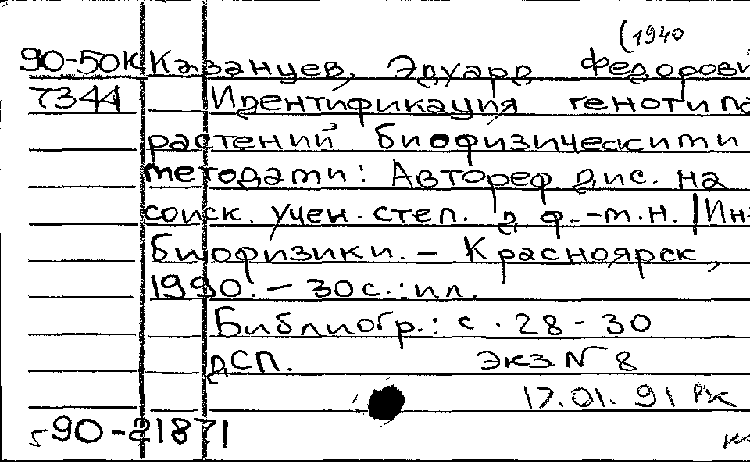 (1940
90-50к Казанцев, Эдуард Федорови
7344 Идентификация генотипо
растений биофизическими
методами: Автореф дис. на
соиск. учен. степ. д. ф.-м.н. | Ин-
биофизики. - Красноярск,
1990. - 30 с.: ил.
Библиогр.: с. 28-30
ДСП. Экз. N 8
17.01.91 РК
90-21871